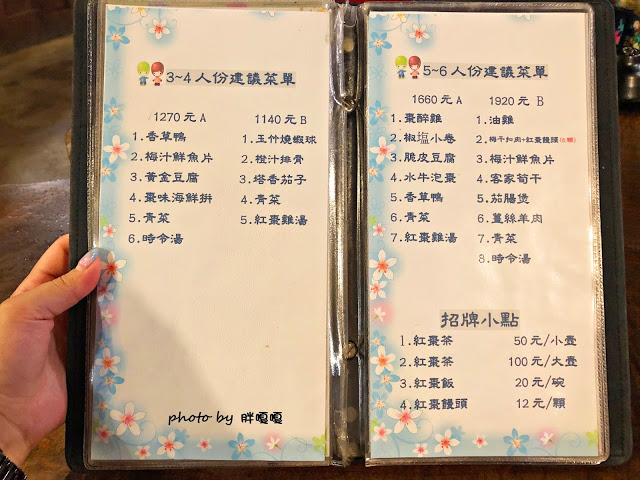 3~4人份建議菜單
1270元A
1.香草鴨
2.梅汁鮮魚片
3.黃金豆腐
4.棗味海鮮拼
5.青菜
6.時令湯
1140元B
1.玉竹燒蝦球
2.橙汁排骨
3.塔香茄子
4.青菜
5.紅棗雞湯
photo by 胖嘎嘎
5~6人份建議菜單
1660元A
1.棗醉雞
2.椒塩小卷
3.脆皮豆腐
4.水牛泡棗
5.香草鴨
6.青菜
7.紅棗雞湯
1920元 B
1.油雞
2.梅干扣肉+紅棗饅頭(6顆)
3.梅汁鮮魚片
4.客家筍干
5.茄腸煲
6.薑絲羊肉
7.青菜
8.時令湯
招牌小點
1.紅棗茶 50元/小壺
2.紅棗茶 100元/大壺
3.紅棗飯 20元/碗
4.紅棗饅頭 12元/顆